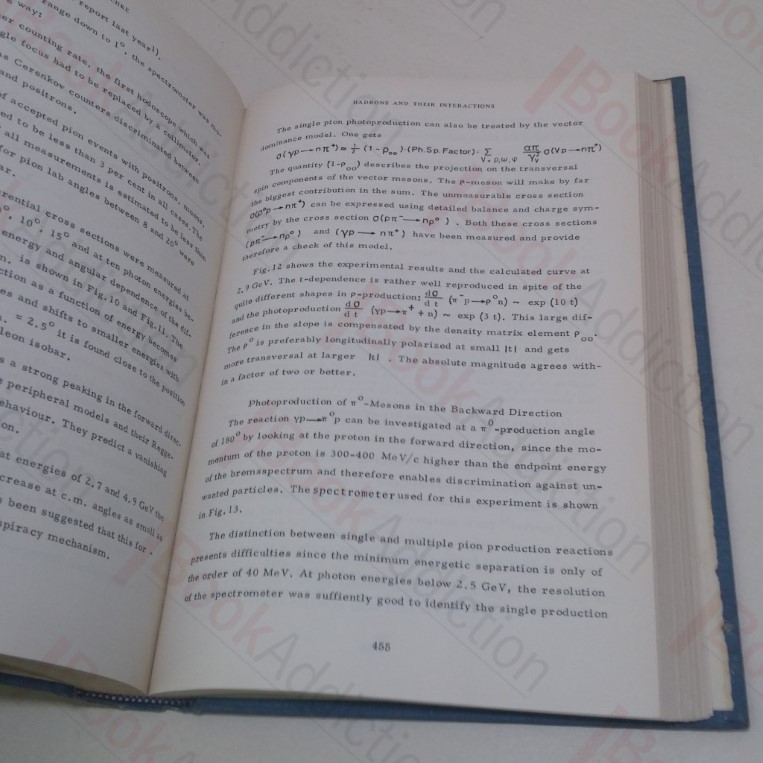 report last year!).
range down to 1°, the spectrometer was
way:
er counting rate, the first hodoscope which was
gle focus had to be replaced by a collimator
as Cerenkov counters discriminated between
and positrons.
of accepted pion events with positrons, muons,
ed to be less than 3 per cent in all cases. The
all measurements is estimated to be less than
for pion lab angles between 8 and 20° were
ar.
rential cross sections were measured at
10°, 15° and at ten photon energies be-
energy and angular dependence of the dif-
n. is shown in Fig. 10 and Fig. 11. The
ction as a function of energy becomes
es and shifts to smaller energies with
= 2.5° it is found close to the position
leon isobar.
s a strong peaking in the forward direc-
e peripheral models and their Regge-
ehaviour. They predict a vanishing
on.
at energies of 2.7 and 4.9 GeV the
crease at c.m. angles as small as
s been suggested that this for.
spiracy mechanism.
HADRONS AND THEIR INTERACTIONS
The single pion photoproduction can also be treated by the vector
dominance model. One gets
σ(γp→nπ⁺) ∝ ½ (1-ρₒₒ)·(Ph.Sp.Factor)· Σ απ/γᵥ σ(Vp→nπ⁺)
V = ρ,ω,φ
The quantity (1-ρₒₒ) describes the projection on the transversal
spin components of the vector mesons. The ρ-meson will make by far
the biggest contribution in the sum. The unmeasurable cross section
σ(ρ°p→nπ⁺) can be expressed using detailed balance and charge sym-
metry by the cross section σ(pπ⁻→nρ°). Both these cross sections
(pπ⁻→nρ°) and (γp→nπ⁺) have been measured and provide
therefore a check of this model.
Fig. 12 shows the experimental results and the calculated curve at
2.9 GeV. The t-dependence is rather well reproduced in spite of the
quite different shapes in ρ-production: dσ/dt (π⁻p→ρ°n) ~ exp (10 t)
and the photoproduction dσ/dt (γp→π⁺ + n) ~ exp (3 t). This large dif-
ference in the slope is compensated by the density matrix element ρₒₒ.
The ρ° is preferably longitudinally polarized at small |t| and gets
more transversal at larger |t|. The absolute magnitude agrees with-
in a factor of two or better.
Photoproduction of π°-Mesons in the Backward Direction
The reaction γp→π°p can be investigated at a π°-production angle
of 180° by looking at the proton in the forward direction, since the mo-
mentum of the proton is 300-400 MeV/c higher than the endpoint energy
of the bremsspectrum and therefore enables discrimination against un-
wanted particles. The spectrometer used for this experiment is shown
in Fig. 13.
The distinction between single and multiple pion production reactions
presents difficulties since the minimum energetic separation is only of
the order of 40 MeV. At photon energies below 2.5 GeV, the resolution
of the spectrometer was suffiently good to identify the single production
455
BookAddiction